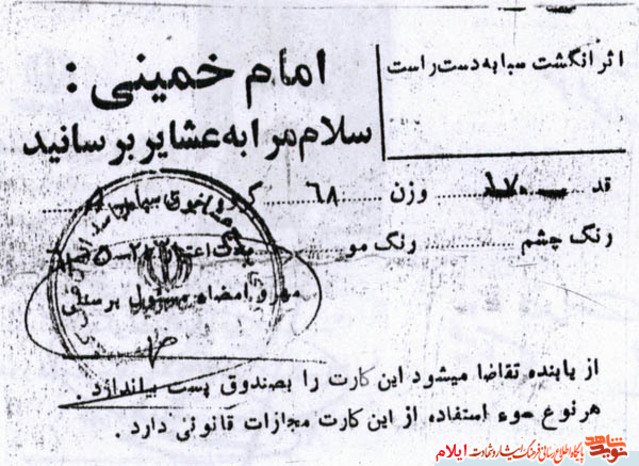 اثر انگشت سبابه دست راست
امام خمینی :
سلام مرا به عشایر برسانید
قد ۱۷۰ وزن ۶۸
رنگ چشم رنگ مو
مدت اعتبار
مهر و امضاء مسئول پرسنلی
از یابنده تقاضا میشود این کارت را بصندوق پست بیاندازد .
هر نوع سوء استفاده از این کارت مجازات قانونی دارد .
نوید شاهد پایگاه اطلاع رسانی فرهنگ ایثار و شهادت ایلام